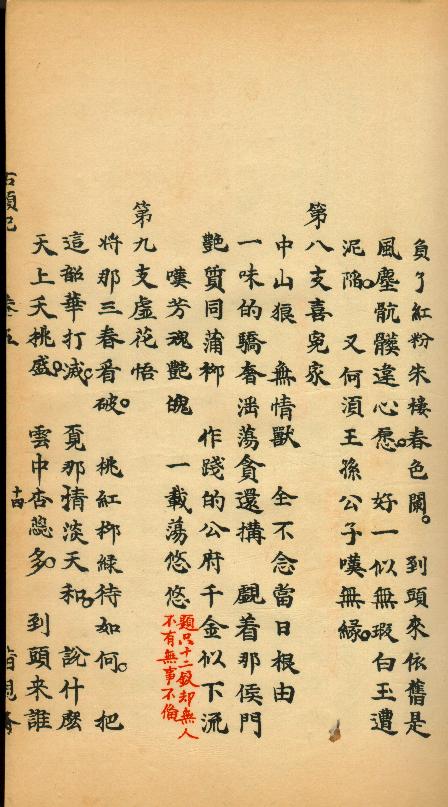 負了紅粉朱樓春色闌。到頭來依舊是
風塵骯髒違心愿。好一似無瑕白玉遭
泥陷。又何須王孫公子嘆無緣。
第八支喜冤家
中山狼 無情獸 全不念當日根由
一味的驕奢淫蕩貪還搆 覷着那侯門
艷質同蒲柳 作踐的公府千金似下流
嘆芳魂艷魄 一載蕩悠悠
題只十二釵却無人
不有無事不備
第九支虛花悟
將那三春看破。桃紅柳綠待如何。把
這韶華打滅。覓那清淡天和。說什麽
天上夭桃盛。雲中杏蕊多。到頭來誰
石頭記 卷五 十四